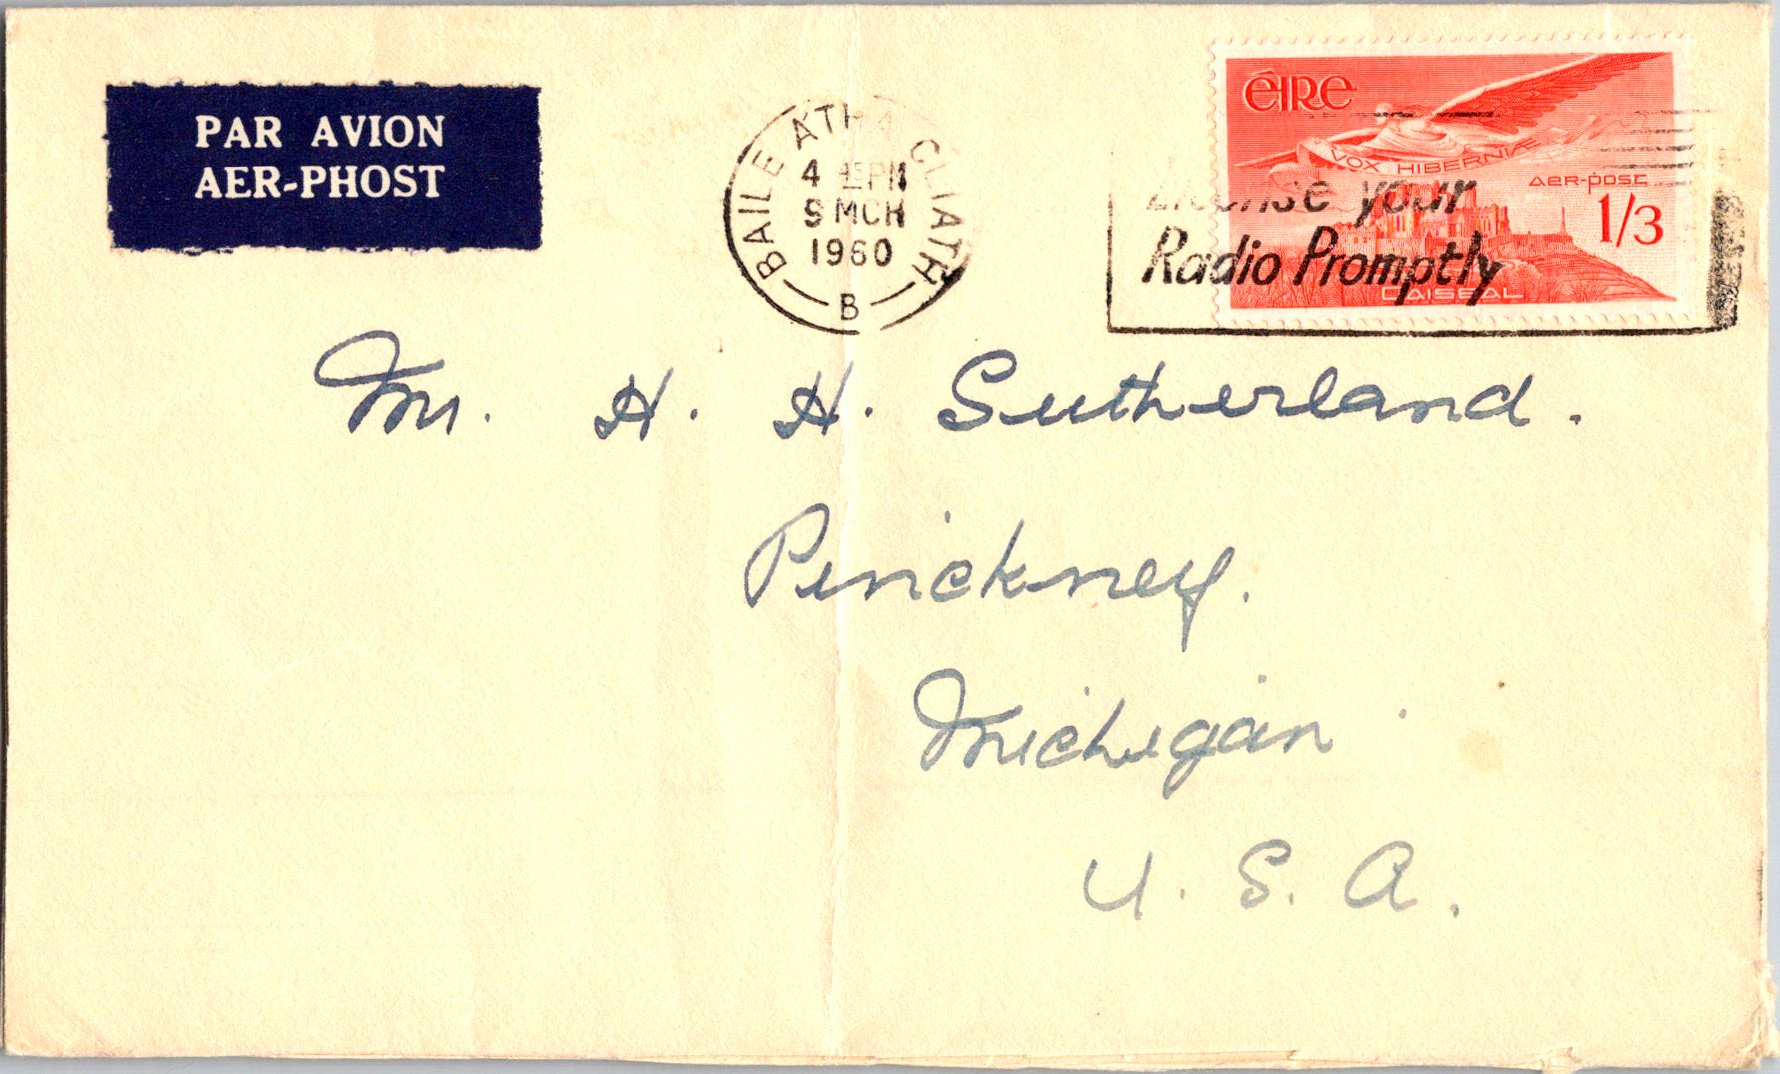 PAR AVION
AER-PHOST
BAILE ATHA CLIATH
4 45 PM
9 MCH
1960
B
License your
Radio Promptly
éIRe
VOX HIBERNIÆ
Aer-post
1/3
CAISEAL
Mr. H. H. Sutherland.
Pinckney.
Michigan
U. S. A.